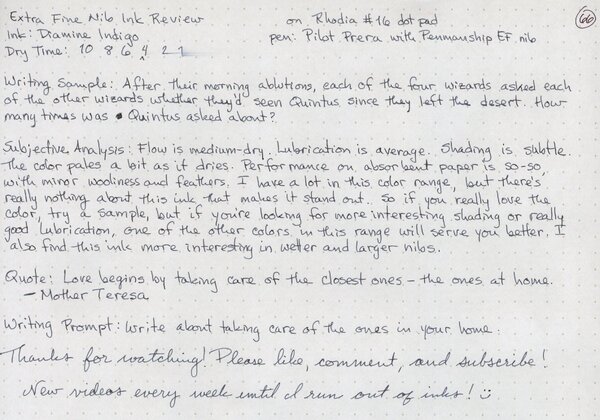 Extra Fine Nib Ink Review on Rhodia #16 dot pad 66
Ink: Diamine Indigo pen: Pilot Prera with Penmanship EF nib
Dry Time: 10 8 6 4 2 1
Writing Sample: After their morning ablutions, each of the four wizards asked each
of the other wizards whether they'd seen Quintus since they left the desert. How
many times was Quintus asked about?
Subjective Analysis: Flow is medium-dry. Lubrication is average. Shading is subtle.
The color pales a bit as it dries. Performance on absorbent paper is so-so,
with minor wooliness and feathers. I have a lot in this color range, but there's
really nothing about this ink that makes it stand out. So if you really love the
color, try a sample, but if you're looking for more interesting shading or really
good lubrication, one of the other colors in this range will serve you better. I
also find this ink more interesting in wetter and larger nibs.
Quote: Love begins by taking care of the closest ones - the ones at home.
- Mother Teresa
Writing Prompt: Write about taking care of the ones in your home.
Thanks for watching! Please like, comment, and subscribe!
New videos every week until I run out of inks! :)